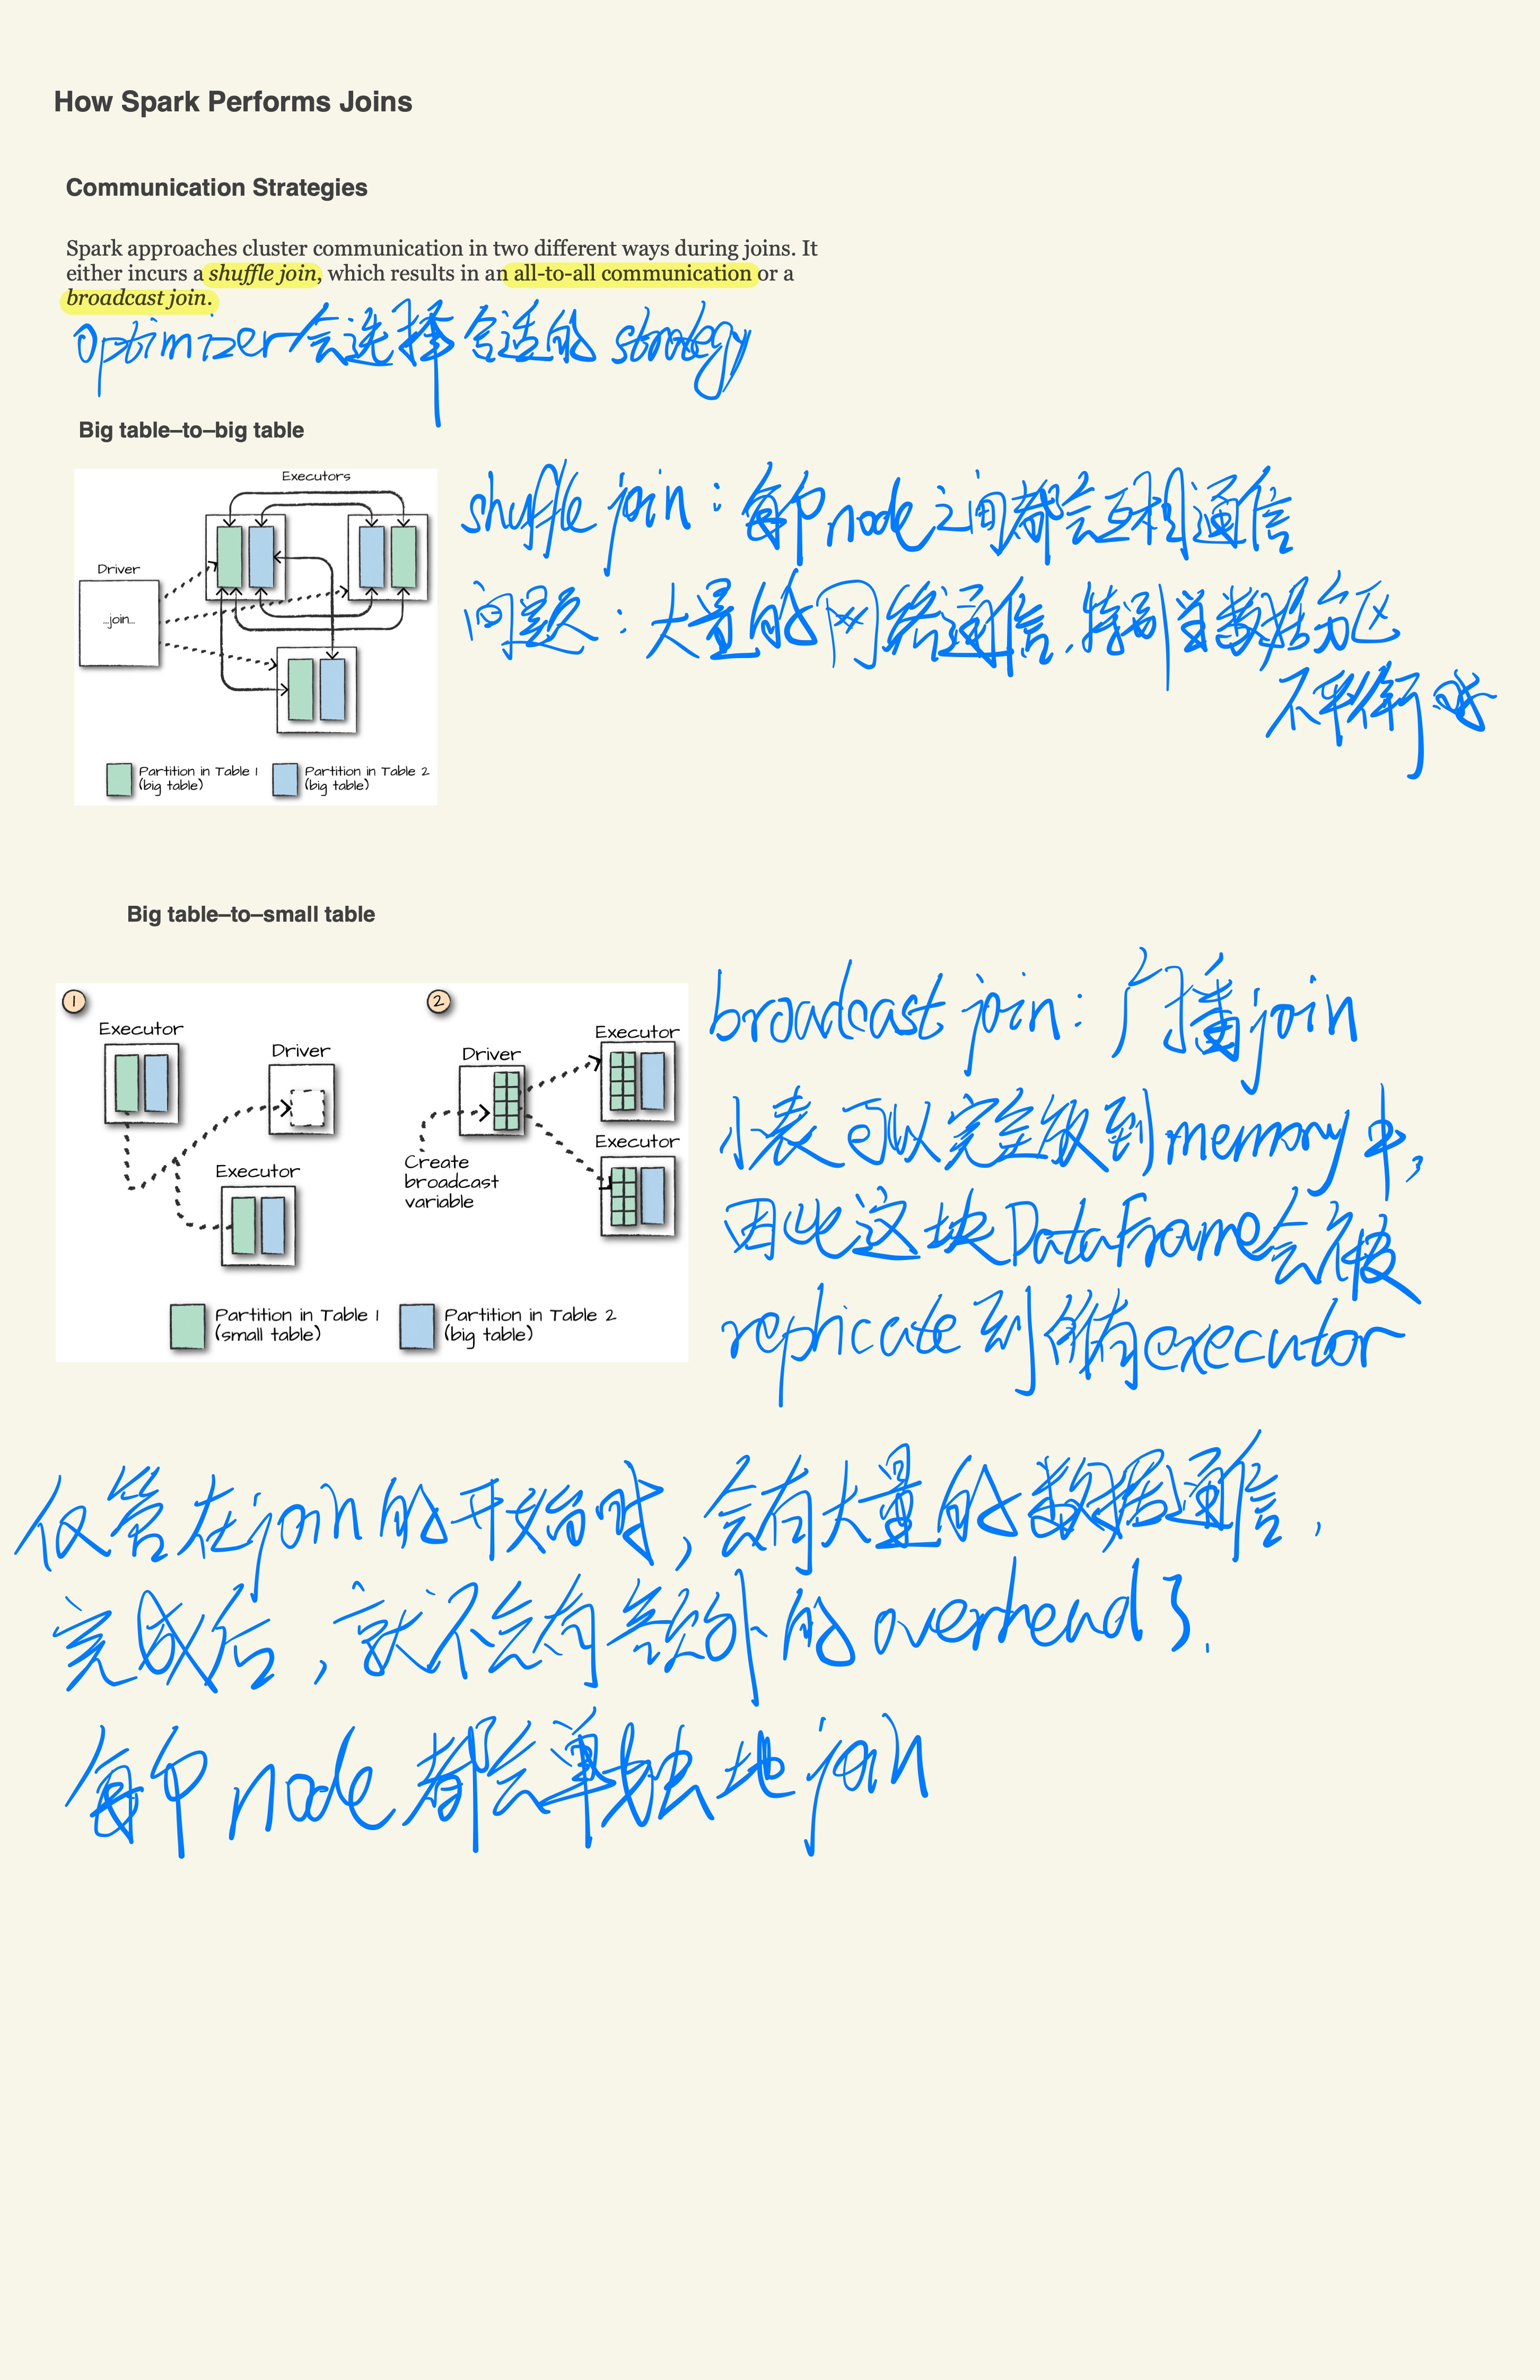 How Spark Performs Joins
Communication Strategies
Spark approaches cluster communication in two different ways during joins. It
either incurs a shuffle join, which results in an all-to-all communication or a
broadcast join.
optimizer会选择合适的 strategy
Big table–to–big table
Executors
Driver
...join...
Partition in Table 1
(big table)
Partition in Table 2
(big table)
shuffle join: 每个node之间都会互相通信
问题: 大量的网络通信,特别当数据分区
不平衡时
Big table–to–small table
1
Executor
Driver
Executor
2
Driver
Executor
Executor
Create
broadcast
variable
Partition in Table 1
(small table)
Partition in Table 2
(big table)
broadcast join: 广播join
小表可以完全放到memory中,
因此这块DataFrame会被
replicate到所有executor
仅管在join的开始时,会有大量的数据通信,
完成后,就不会有额外的overhead了.
每个node都会单独地join